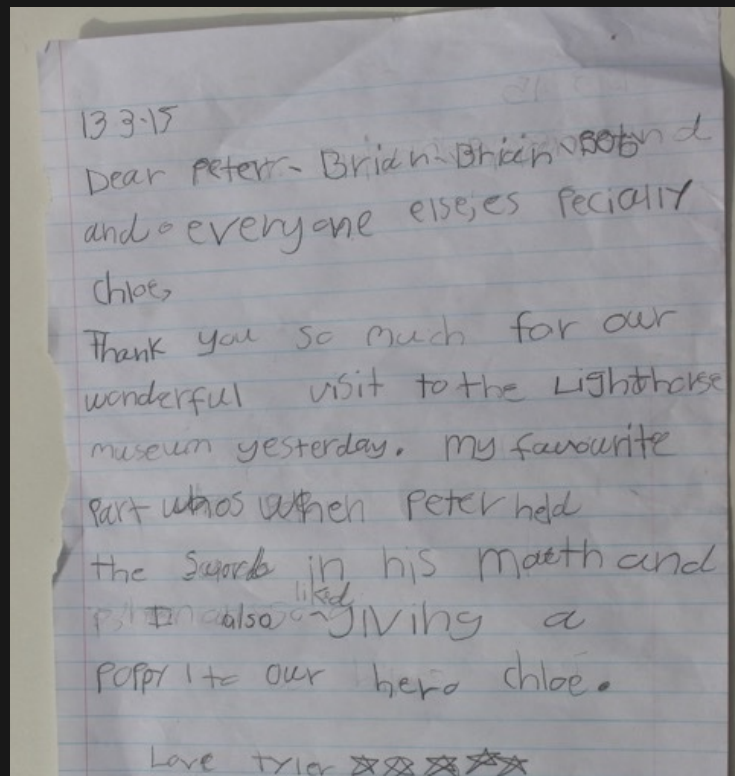 13.3.15
Dear Peter - Brian - Brian and
and everyone else, es pecially
Chloe,
Thank you so much for our
wonderful visit to the Lighthorse
museum yesterday. My favourite
Part was when Peter held
the Sword in his moath and
I also liked giving a
Poppy to our hero Chloe.
Love Tyler